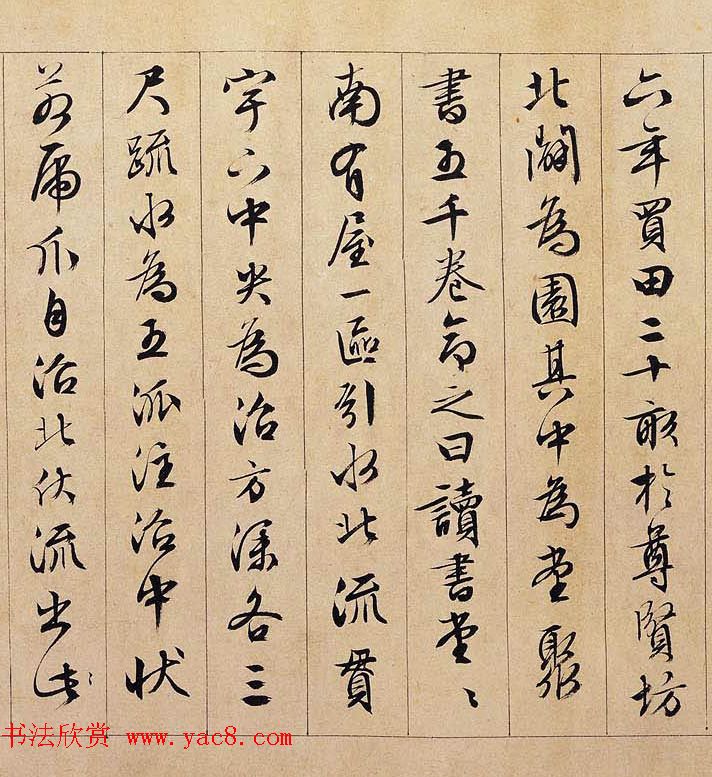 六年買田二十畝於尊賢坊
北闢為園其中為堂聚
書五千卷命之曰讀書堂〻
南有屋一區引水北流貫
宇下中央為沼方深各三
尺疏水為五派注沼中狀
若虎爪自沼北伏流出
书法欣赏 www.yac8.com